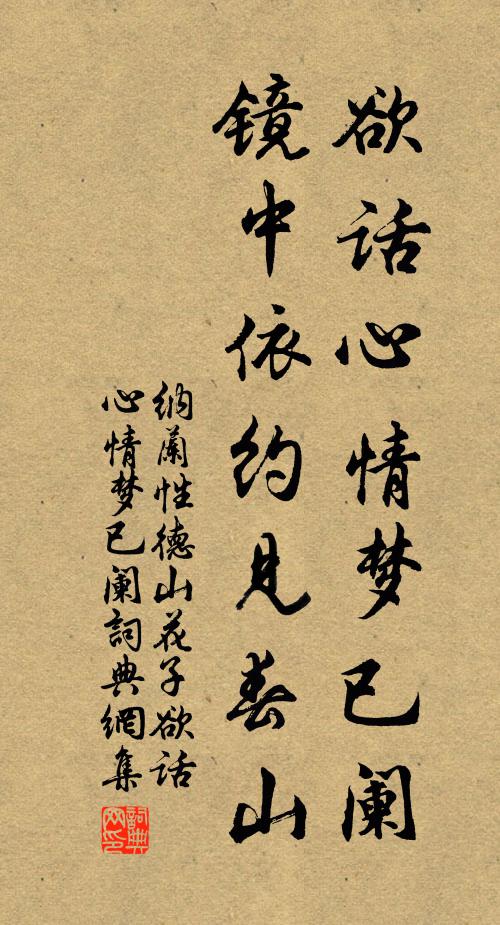 欲话心情梦已阑
镜中依约见春山
纳兰性德山花子欲话
心情梦已阑詞典網集
詞典
网印